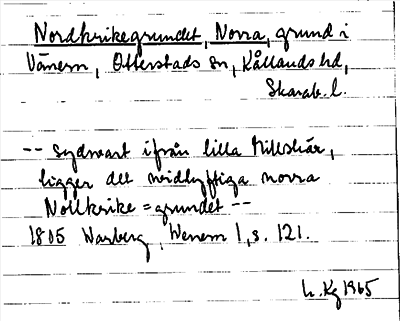 Nordkrikegrundet, Norra, grund i
Vänern, Otterstads sn, Kållands hd,
Skarab. l.
-- sydwart ifrån lilla Millskär,
ligger det widlyftiga norra
Nollkrike=grundet --
1805 Warberg, Wenern 1, s. 121.
L. Kg 1965